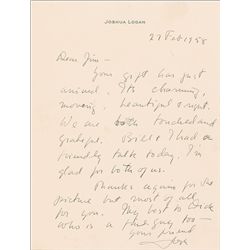 JOSHUA LOGAN
27 Feb 1958
Dear Jim -
Your gift has just
arrived. Its charming,
moving, beautiful & right.
We are both touched and
grateful. Bill & I had a
friendly talk today. I'm
glad for both of us.
Thanks again for the
picture but most of all
for you. My best to
who is a fine guy too -
your friend
Josh